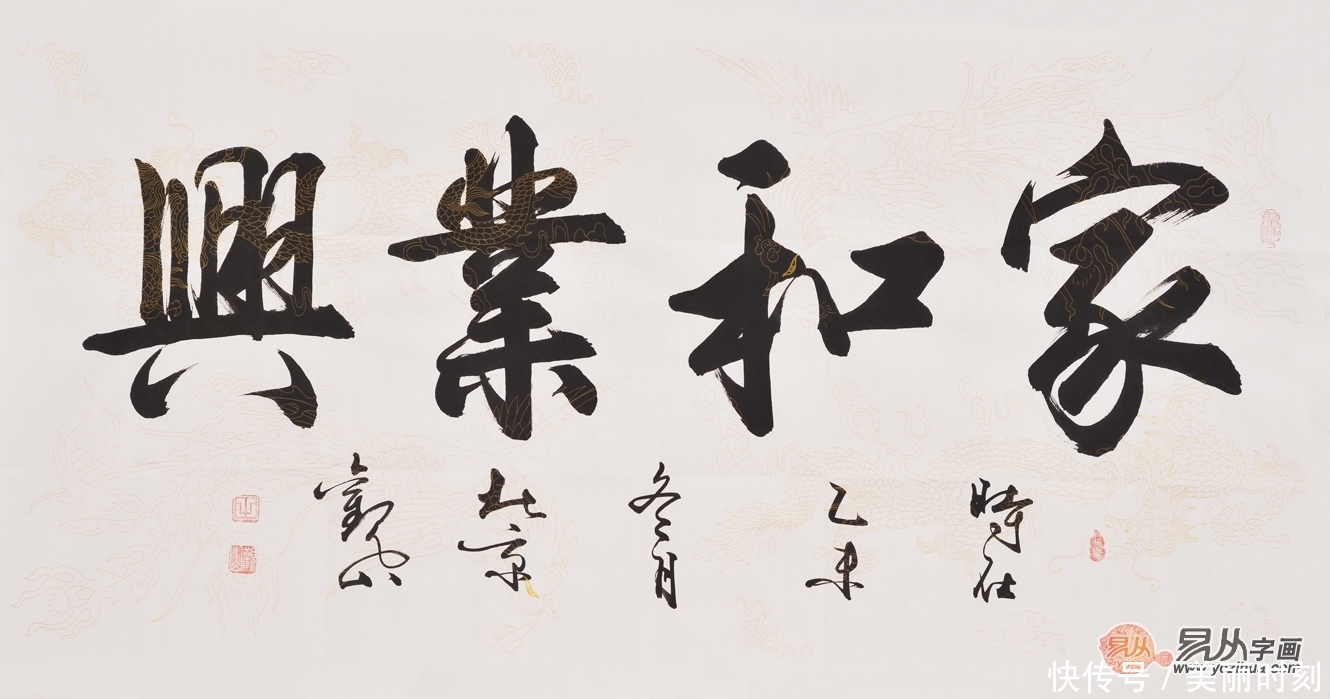 家和業興
時在
乙未
冬月
北京
觀山
易从字画
www.yczihua.com
快传号 / 美丽时刻